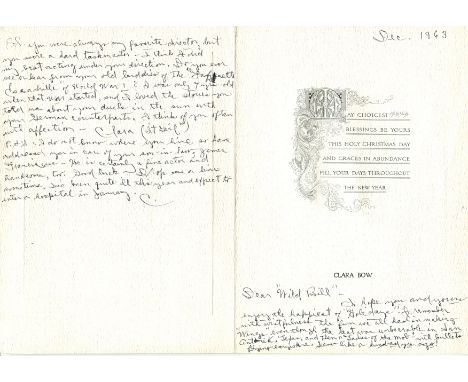 Dec. 1963
MAY CHOICEST
BLESSINGS BE YOURS
THIS HOLY CHRISTMAS DAY
AND GRACES IN ABUNDANCE
FILL YOUR DAYS THROUGHOUT
THE NEW YEAR
CLARA BOW
Dear "Wild Bill" -
I hope you and yours
enjoy the happiest of Holidays. I remember
with wistfulness the fun we all had in making
Wings" even though the heat was unbearable in San
Antonio, Texas, and then a "Ladies of the Mob" with bullets
flying everywhere. Seems like a hundred years ago!
P.S. you were always my favorite director but
you were a hard taskmaster - I think I did
my best acting under your direction. Do you ever
see or hear from your old buddies of the Lafayette
Escadrille of World War I? I was only 7 years old
when that war started, and I loved the stories you
told me about your duels in the sun with
your German counterparts. I think of you often
with affection - Clara (It Girl)
P.S.S. I do not know where you live, so have
addressed you in care of your son-in-law, James
Franciscus - He is certainly a fine actor and
handsome, too. Good luck - Drop me a line
sometime. I've been quite ill this year and expect to
enter a hospital in January. C.